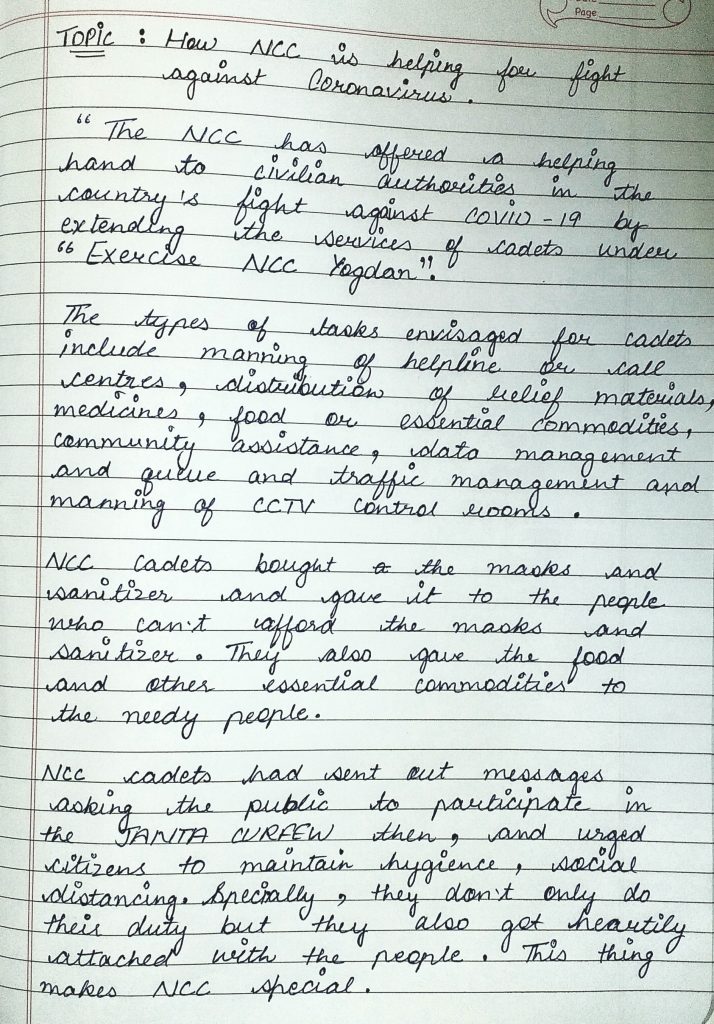 Page
TOPIC : How NCC is helping for fight
against Coronavirus.
" The NCC has offered a helping
hand to civilian authorities in the
country's fight against COVID-19 by
extending the services of cadets under
" Exercise NCC Yogdan".
The types of tasks envisaged for cadets
include manning of helpline or call
centres, distribution of relief materials,
medicines, food or essential commodities,
community assistance, data management
and queue and traffic management and
manning of CCTV control rooms.
NCC cadets bought the masks and
sanitizer and gave it to the people
who can't afford the masks and
sanitizer. They also gave the food
and other essential commodities to
the needy people.
NCC cadets had sent out messages
asking the public to participate in
the JANTA CURFEW then, and urged
citizens to maintain hygience, social
distancing. Specially, they don't only do
their duty but they also get heartily
attached with the people. This thing
makes NCC special.